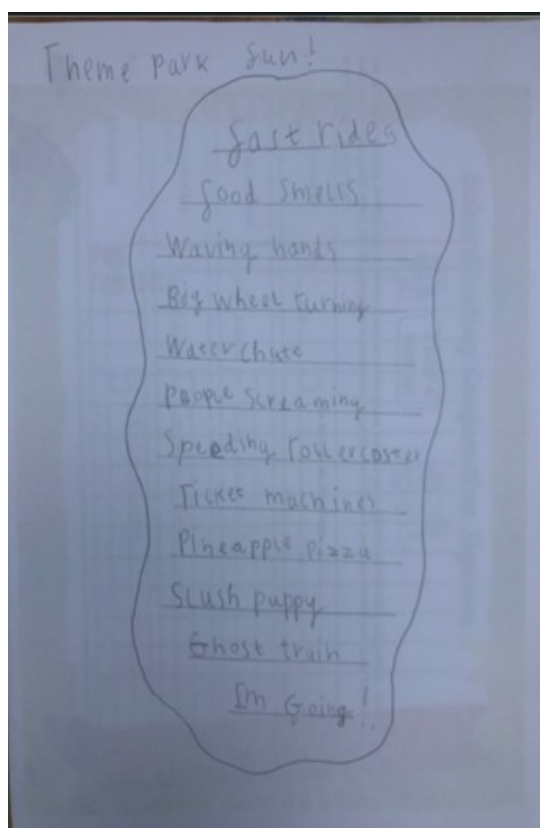 Theme park fun!
fast rides
food smells
Waving hands
Big wheel turning
Water chute
people screaming
Speeding rollercoster
Ticket machines
Pineapple pizza
Slush puppy
Ghost train
Im Going!